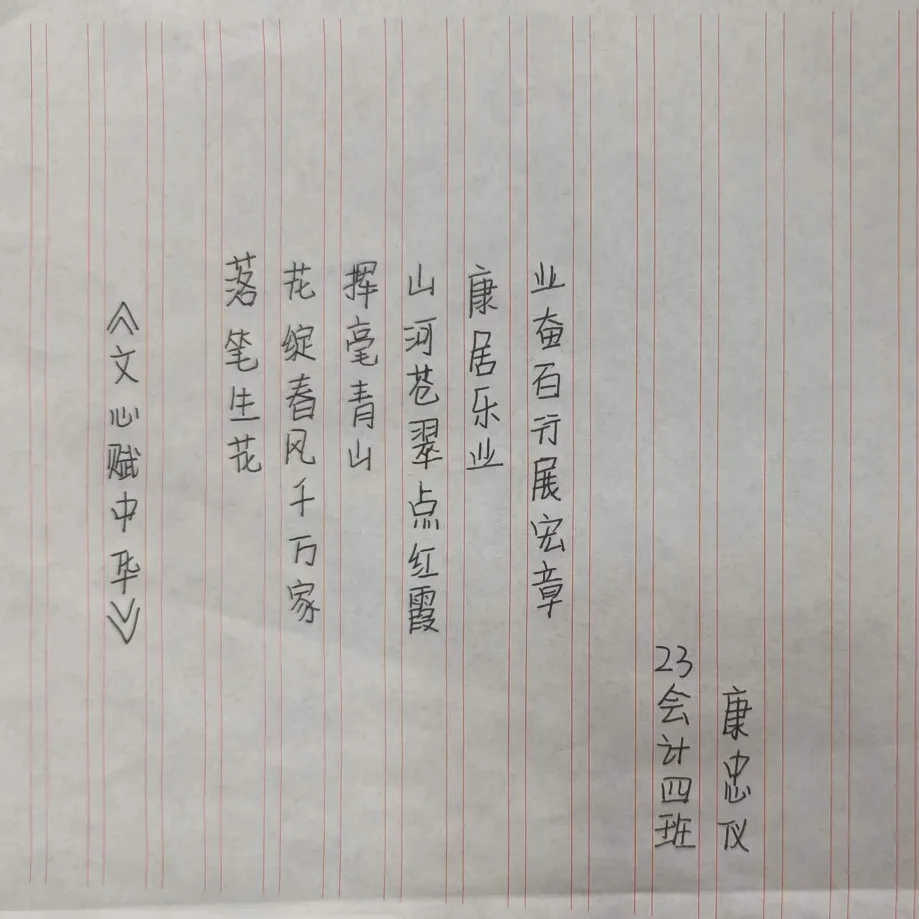 《文心赋中华》
落笔生花
花绽春风千万家
挥毫青山
山河苍翠点红霞
康居乐业
业奋石行展宏章
23会计四班
康忠仪